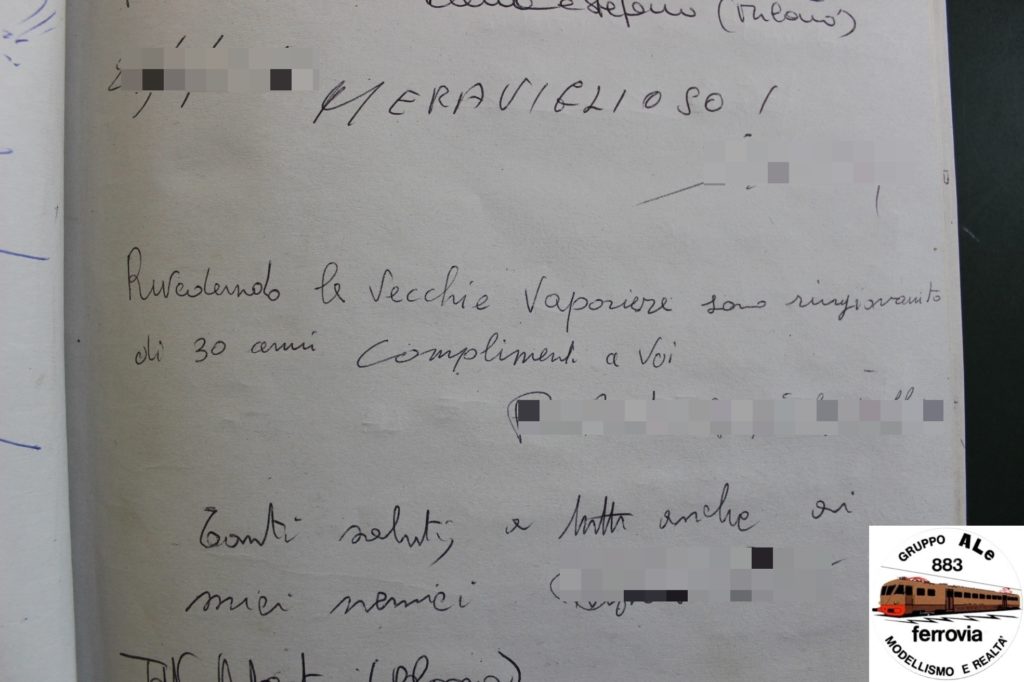 (Milano)
MERAVIGLIOSO!
Rivedendo le vecchie vaporiere sono ringiovanito
di 30 anni Complimenti a Voi
Tanti saluti, a tutti anche ai
miei nemici
GRUPPO ALe
883
ferrovia
MODELLISMO E REALTA'